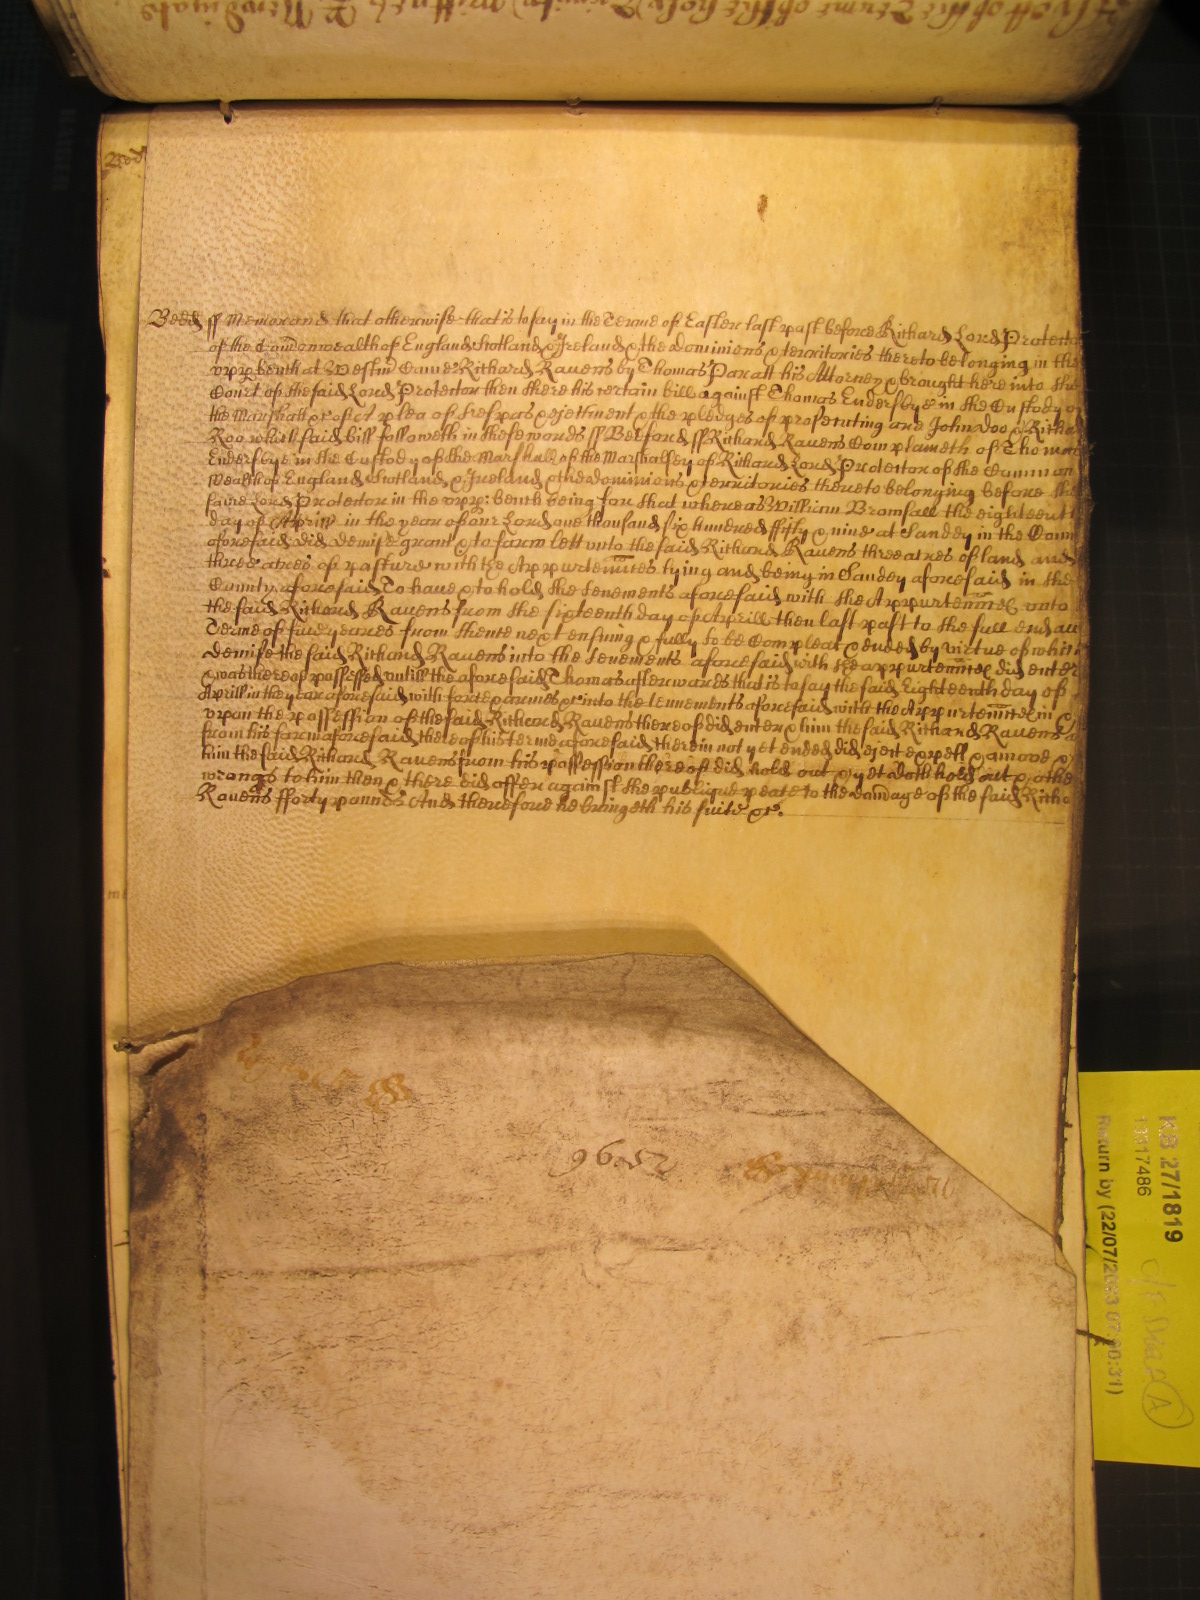 Bedd ss Memorand that otherwise that is to say in the Terme of Easter last past before Richard Lord Protector
of the Comonwealth of England Scotland & Ireland & the dominions & territories thereto belonging in the
upp benth at Westm Came Richard Ravens by Thomas Parratt his Attorney & brought here into the
Court of the said Lord Protector then there his certain bill against Thomas Endersbye in the Custody of
the Marshall &c of A plea of trespas & ejectment & the pledges of prosecuting are John Doo & Richa
Roo which said bill followeth in these words ss Bedford ss Richard Ravens Complaineth of Thomas
Endersbye in the Custody of the Marshall of the Marshalsey of Richard Lord Protector of the Common
wealth of England Scotland & Ireland & the dominions & territories thereto belonging before the
same Lord Protector in the upp: benth being for that whereas William Bromsall the eighteenth
day of Aprill in the year of our Lord one thousand six hundred fifty & nine at Sandey in the Count
aforesaid did demise grant & to farm lett unto the said Richard Ravens three acres of land and
three acres of pasture with the Appurtennces lying and being in Sandey aforesaid in the
County aforesaid To have & to hold the tenements aforesaid with the Appurtennces unto
the said Richard Ravens from the sixteenth day of Aprill then last past to the full end and
Terme of five yeares from thence next ensuing & fully to be Compleat & ended by virtue of which
demise the said Richard Ravens into the tenements aforesaid with the appurtennces did enter
& was thereof possessed untill the aforesaid Thomas afterwards that is to say the said Eighteenth day of
Aprill in the year aforesaid with force & armes &c into the tennements aforesaid with the Appurtennces in &
upon the possession of the said Richard Ravens thereof did enter & him the said Richard Ravens
from his farm aforesaid thereof his terme aforesaid therein not yet ended did eject expell & amove &
him the said Richard Ravens from his possession thereof did hold out & yet doth hold out & other
wrongs to him then & there did offer against the publique peace to the damage of the said Richa
Ravens fforty pounds And therefore he bringeth his suite &c.
KB 27/1819
13517486
Return by (22/07/2023 07:00:31)
A